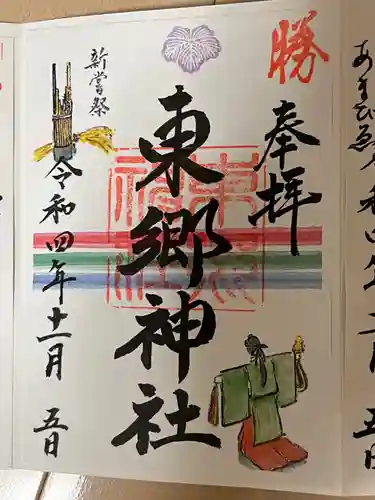 勝
奉拝
東郷神社
新嘗祭
令和四年十一月 五日